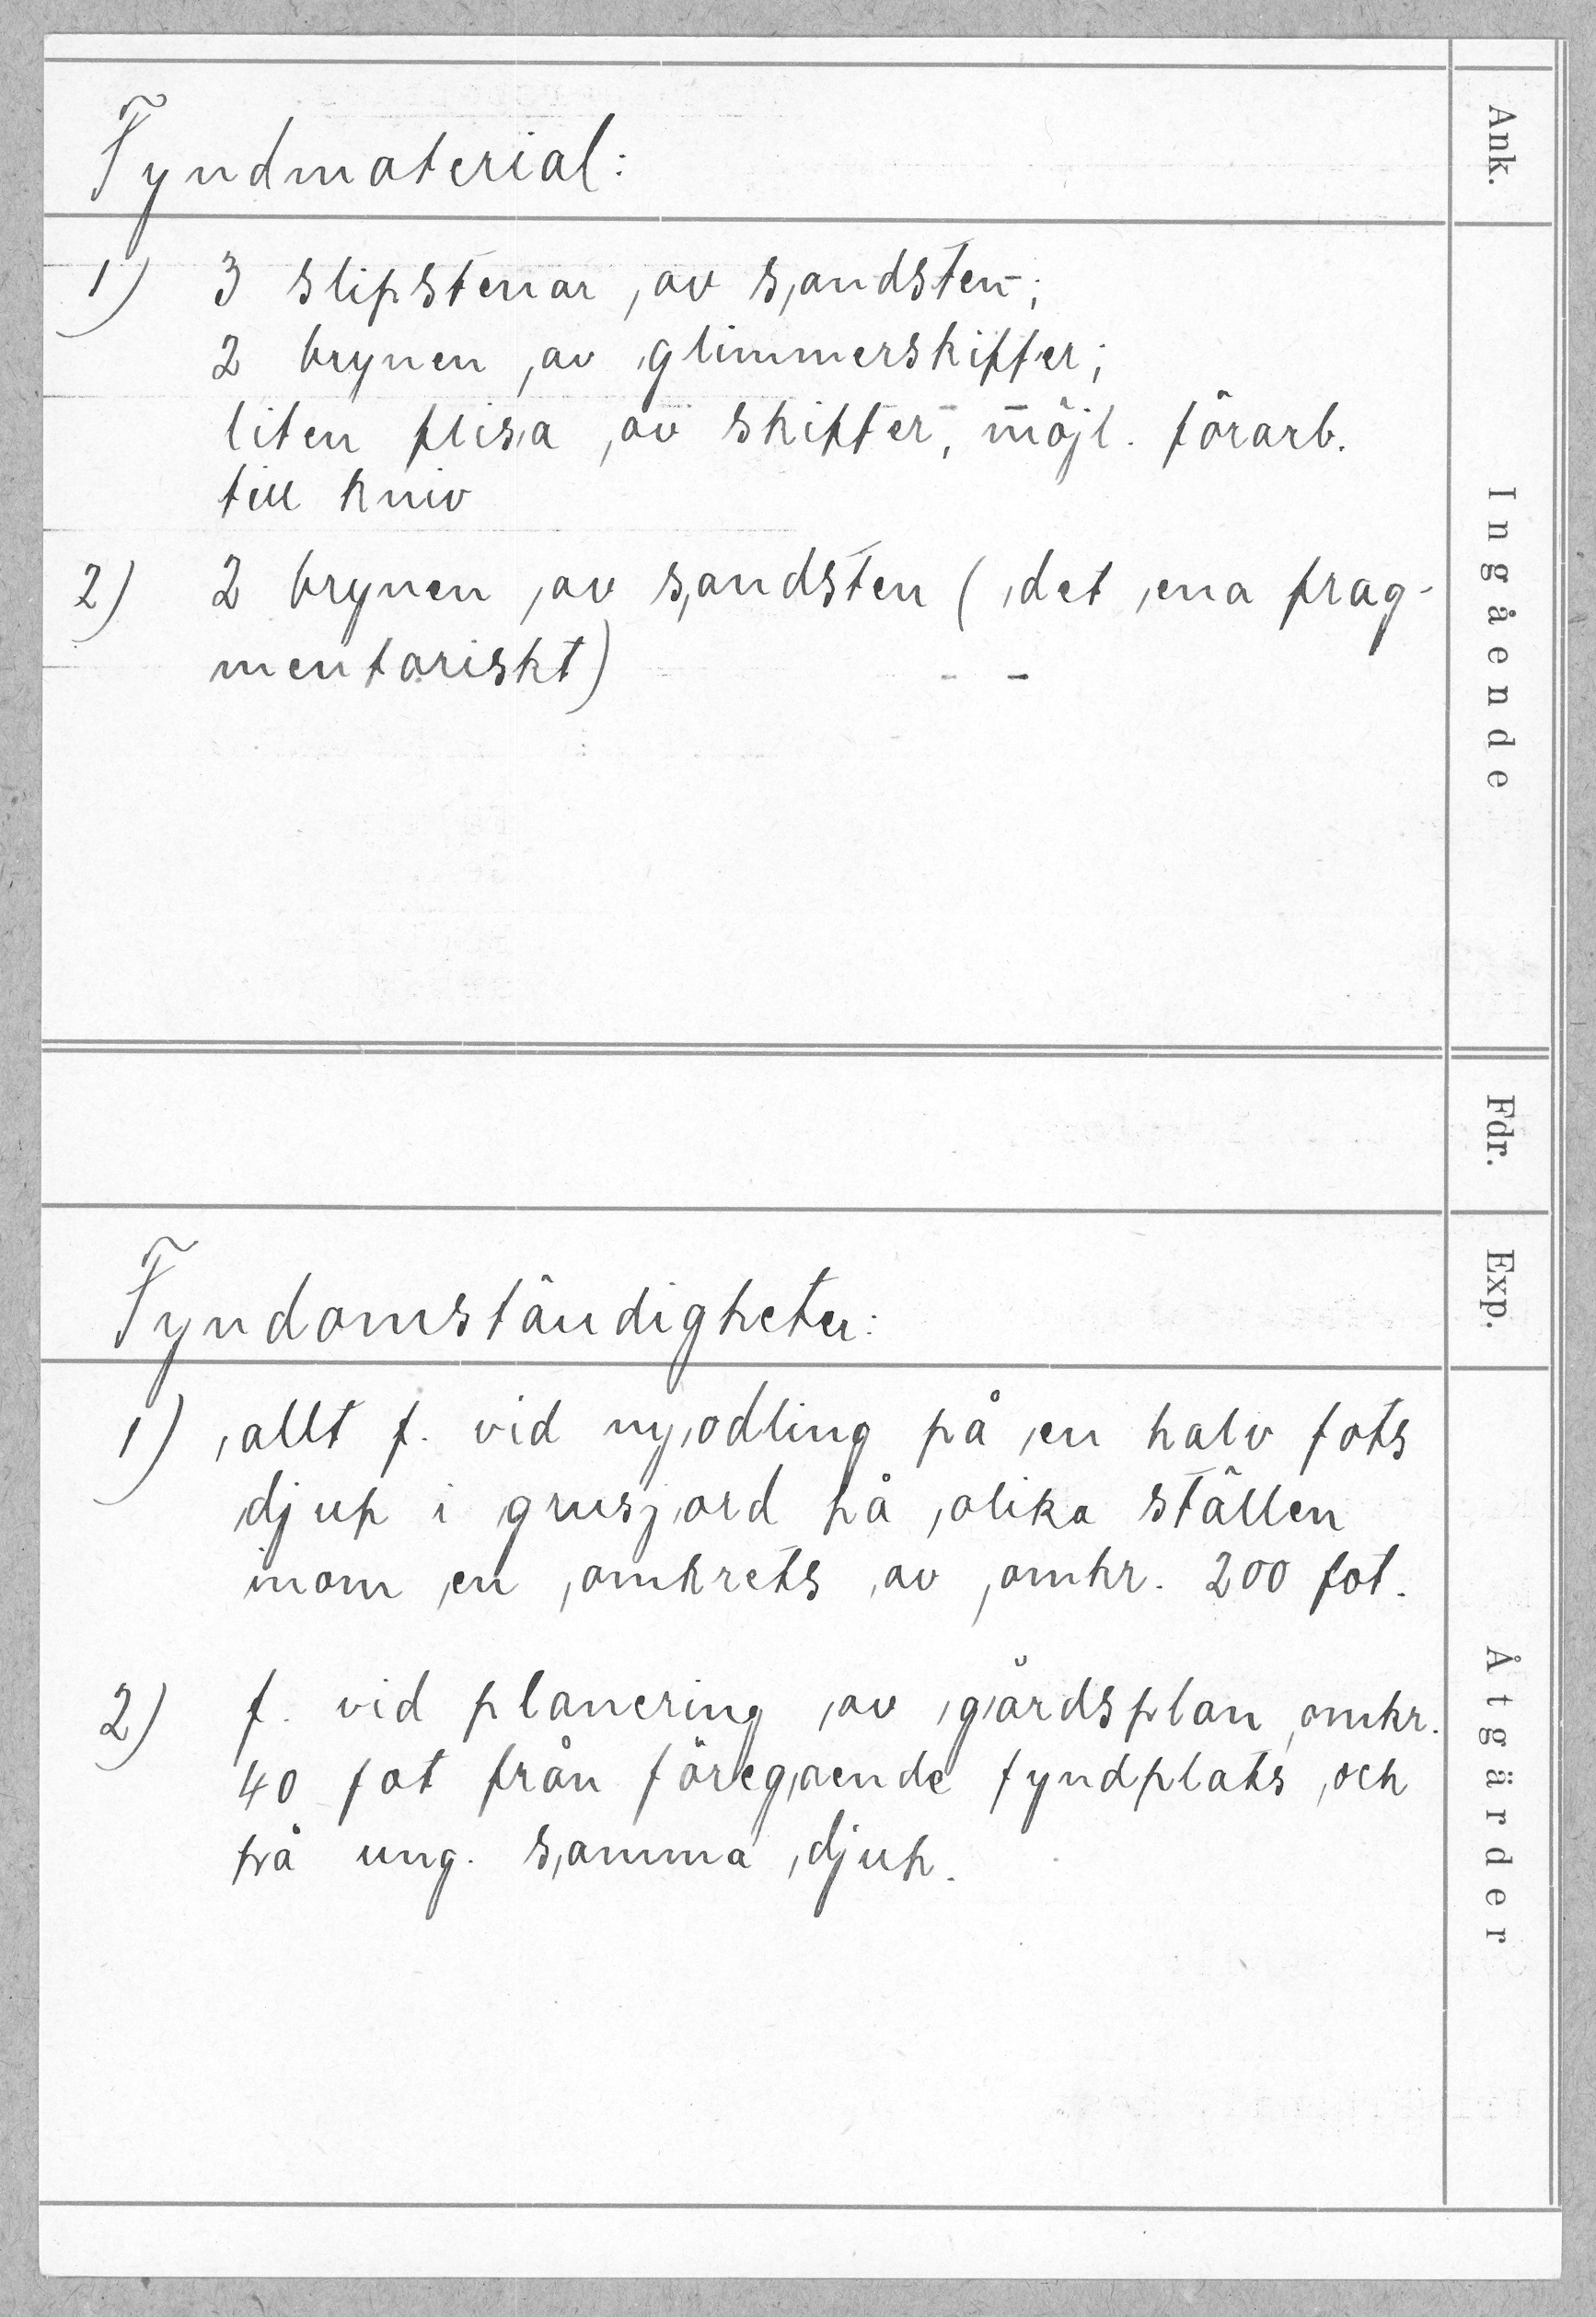 Fyndmaterial:
1) 3 slipstenar av sandsten;
2 brynen av glimmerskiffer;
liten flisa av skiffer, möjl. förarb.
till kniv
2) 2 brynen av sandsten (det ena frag-
mentariskt)
Fyndomständigheter:
1) allt f. vid nyodling på en halv fots
djup i grusjord på olika ställen
inom en omkrets av omkr. 200 fot.
2) f. vid planering av gårdsplan omkr.
40 fot från föregående fyndplats och
på ung. samma djup.
Ank.
Ingående
Fdr.
Exp.
Åtgärder